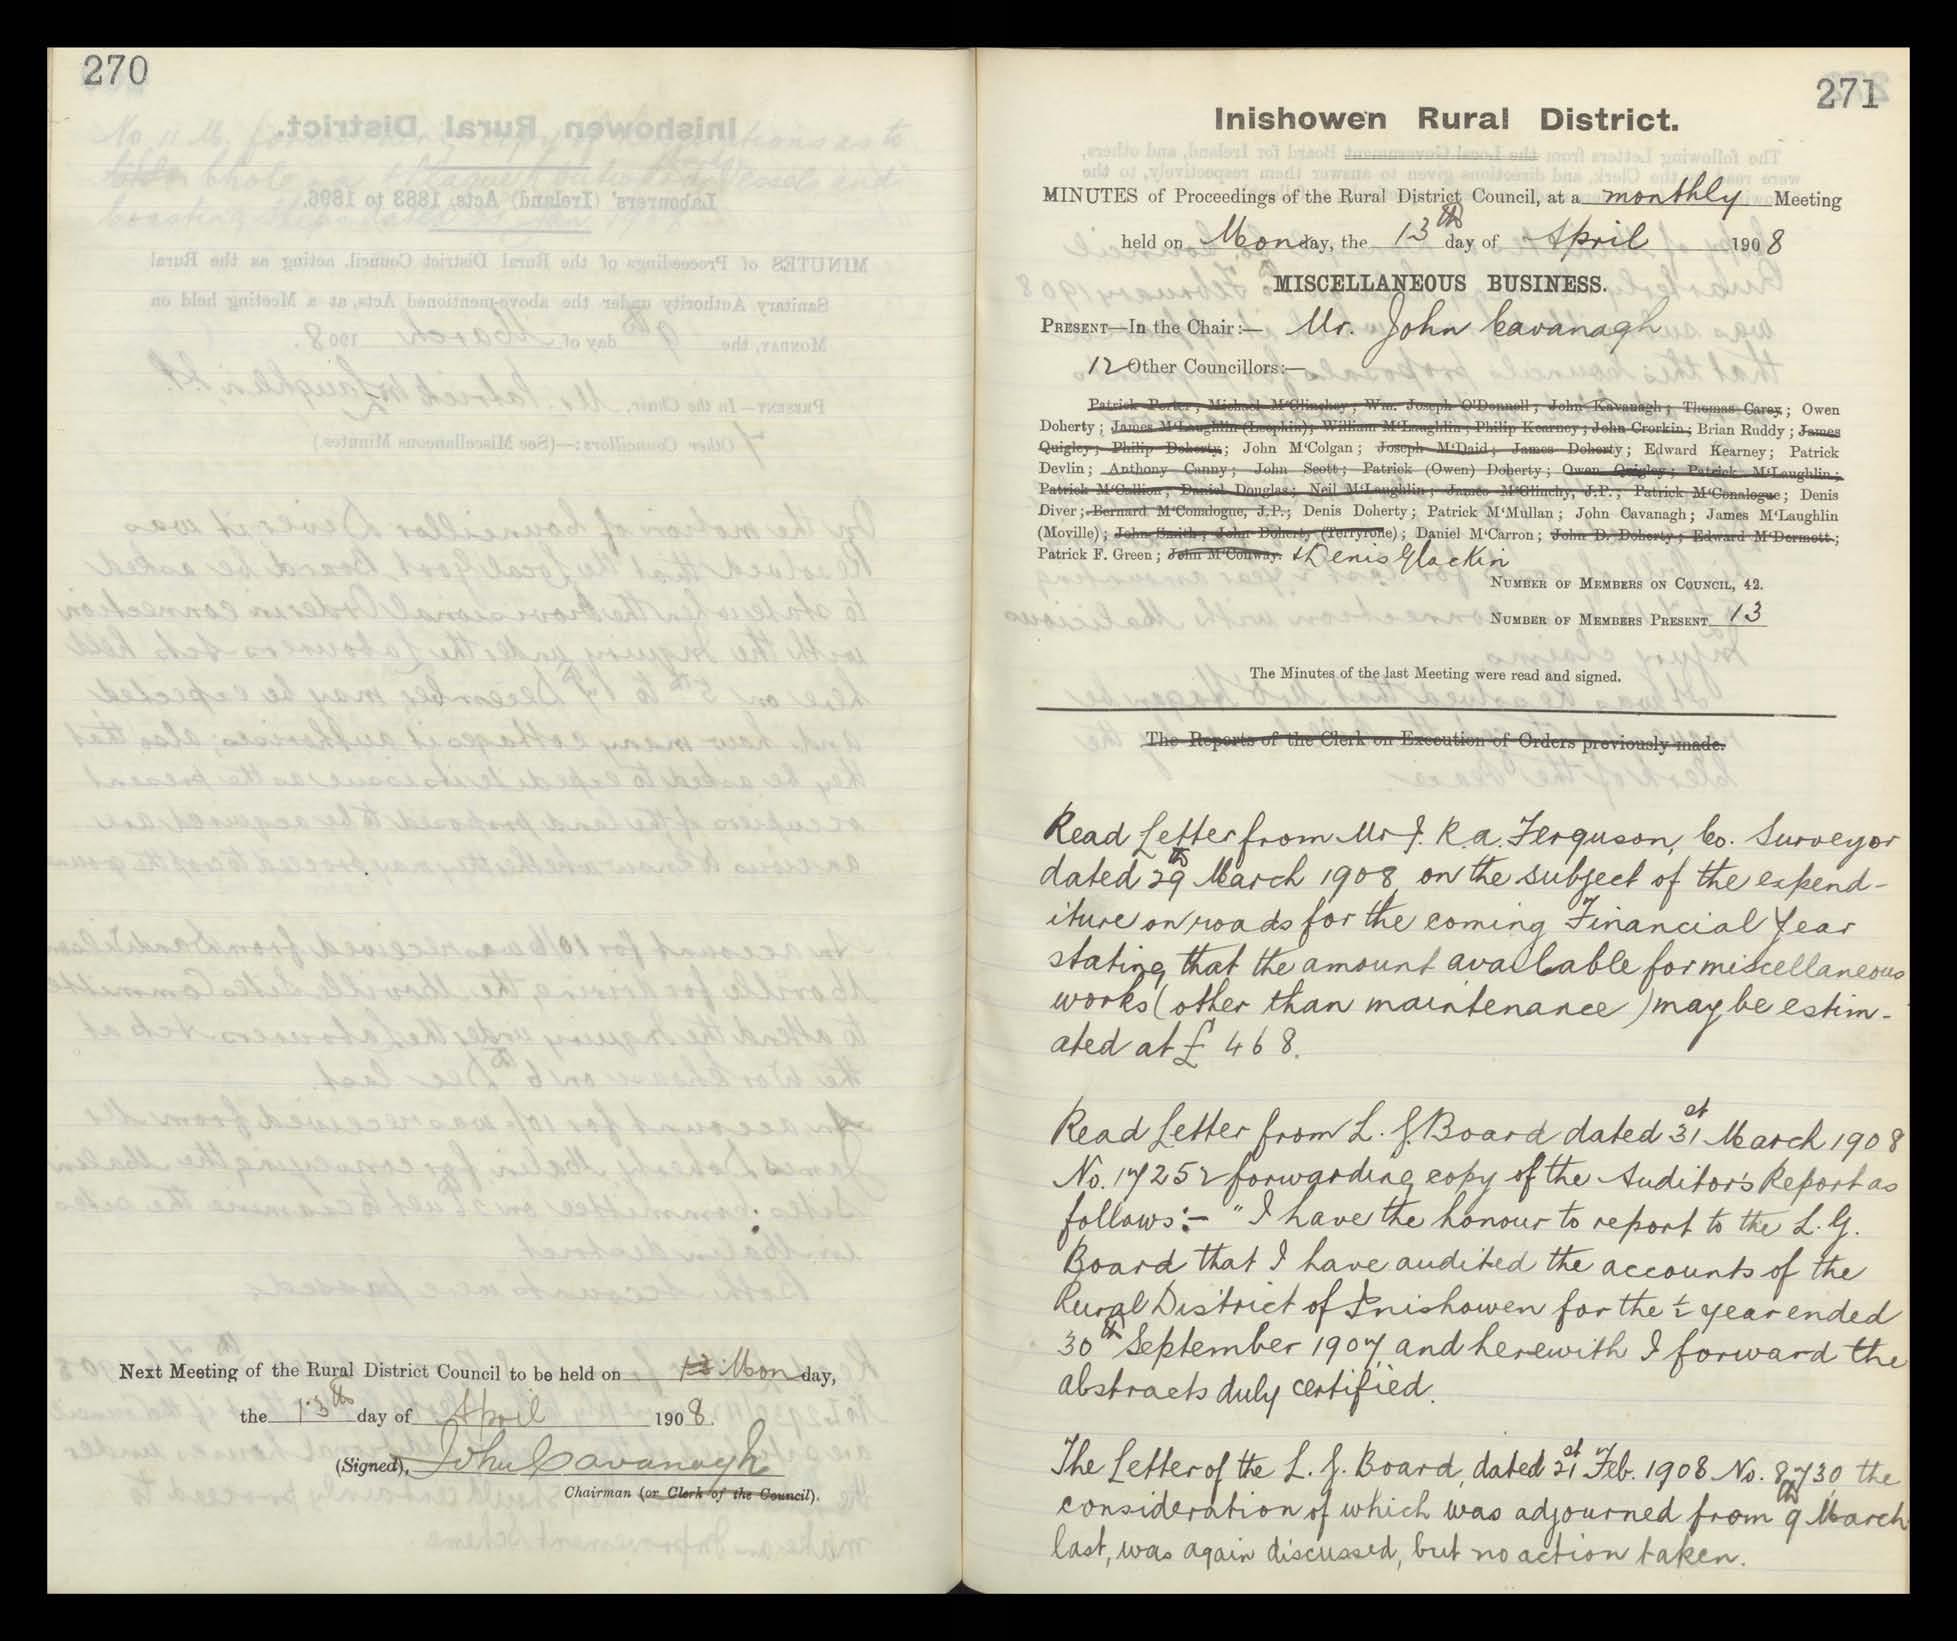 270
Next Meeting of the Rural District Council to be held on 13 Monday,
the 13th day of April 1908.
(Signed), John Cavanagh
Chairman (or Clerk of the Council).
271
Inishowen Rural District.
MINUTES of Proceedings of the Rural District Council, at a monthly Meeting
held on Monday, the 13th day of April 1908
MISCELLANEOUS BUSINESS.
PRESENT—In the Chair:— Mr. John Cavanagh
12 Other Councillors:—
Patrick Porter; Michael M'Glinchey; Wm. Joseph O'Donnell; John Kavanagh; Thomas Carey; Owen
Doherty; James M'Laughlin (Leophin); William M'Laughlin; Philip Kearney; John Crorkin; Brian Ruddy; James
Quigley; Philip Doherty; John M'Colgan; Joseph M'Daid; James Doherty; Edward Kearney; Patrick
Devlin; Anthony Canny; John Scott; Patrick (Owen) Doherty; Owen Quigley; Patrick M'Laughlin;
Patrick M'Callion; Daniel Douglas; Neil M'Laughlin; James M'Glinchy, J.P.; Patrick M'Conalogue; Denis
Diver; Bernard M'Conalogue, J.P.; Denis Doherty; Patrick M'Mullan; John Cavanagh; James M'Laughlin
(Moville); John Smith; John Doherty (Terryrone); Daniel M'Carron; John D. Doherty; Edward M'Dermott;
Patrick F. Green; John M'Conway. & Denis Glackin
NUMBER OF MEMBERS ON COUNCIL, 42.
NUMBER OF MEMBERS PRESENT 13
The Minutes of the last Meeting were read and signed.
The Reports of the Clerk on Execution of Orders previously made.
Read Letter from Mr J. R. A. Ferguson, Co. Surveyor
dated 29th March 1908, on the subject of the expend-
iture on roads for the coming Financial Year
stating that the amount available for miscellaneous
works (other than maintenance) may be estim-
ated at £468.
Read Letter from L. G. Board dated 31st March 1908
No. 17252 forwarding copy of the Auditor's Report as
follows:- "I have the honour to report to the L. G.
Board that I have audited the accounts of the
Rural District of Inishowen for the ½ year ended
30th September 1907 and herewith I forward the
abstracts duly certified.
The Letter of the L. G. Board, dated 21st Feb. 1908 No. 8730 the
consideration of which was adjourned from 9th March
last, was again discussed, but no action taken.